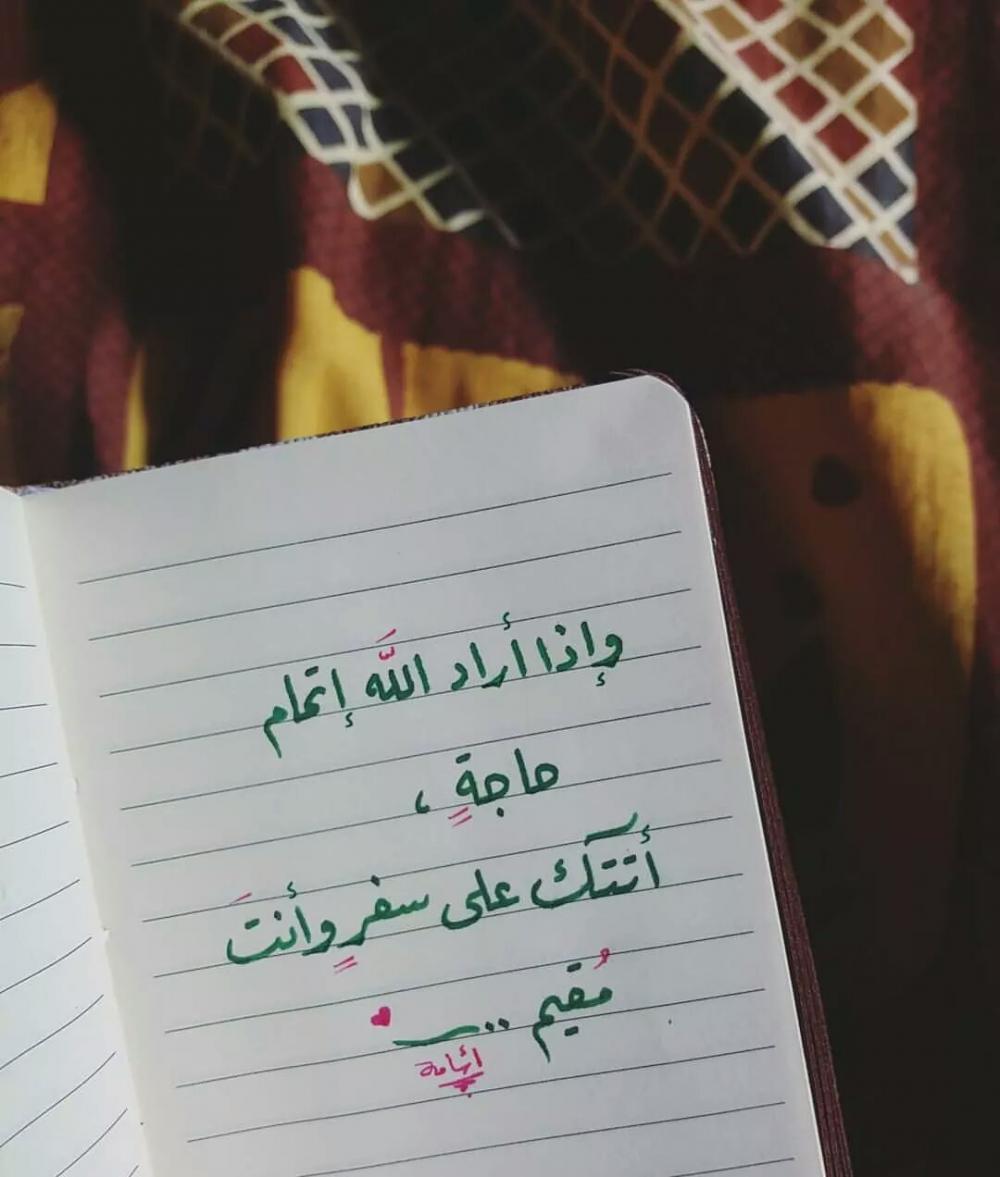 وإذا أراد اللَّه إتمام
حاجةٍ ،
أتتك على سفرٍ وأنتَ
مُقيم ..